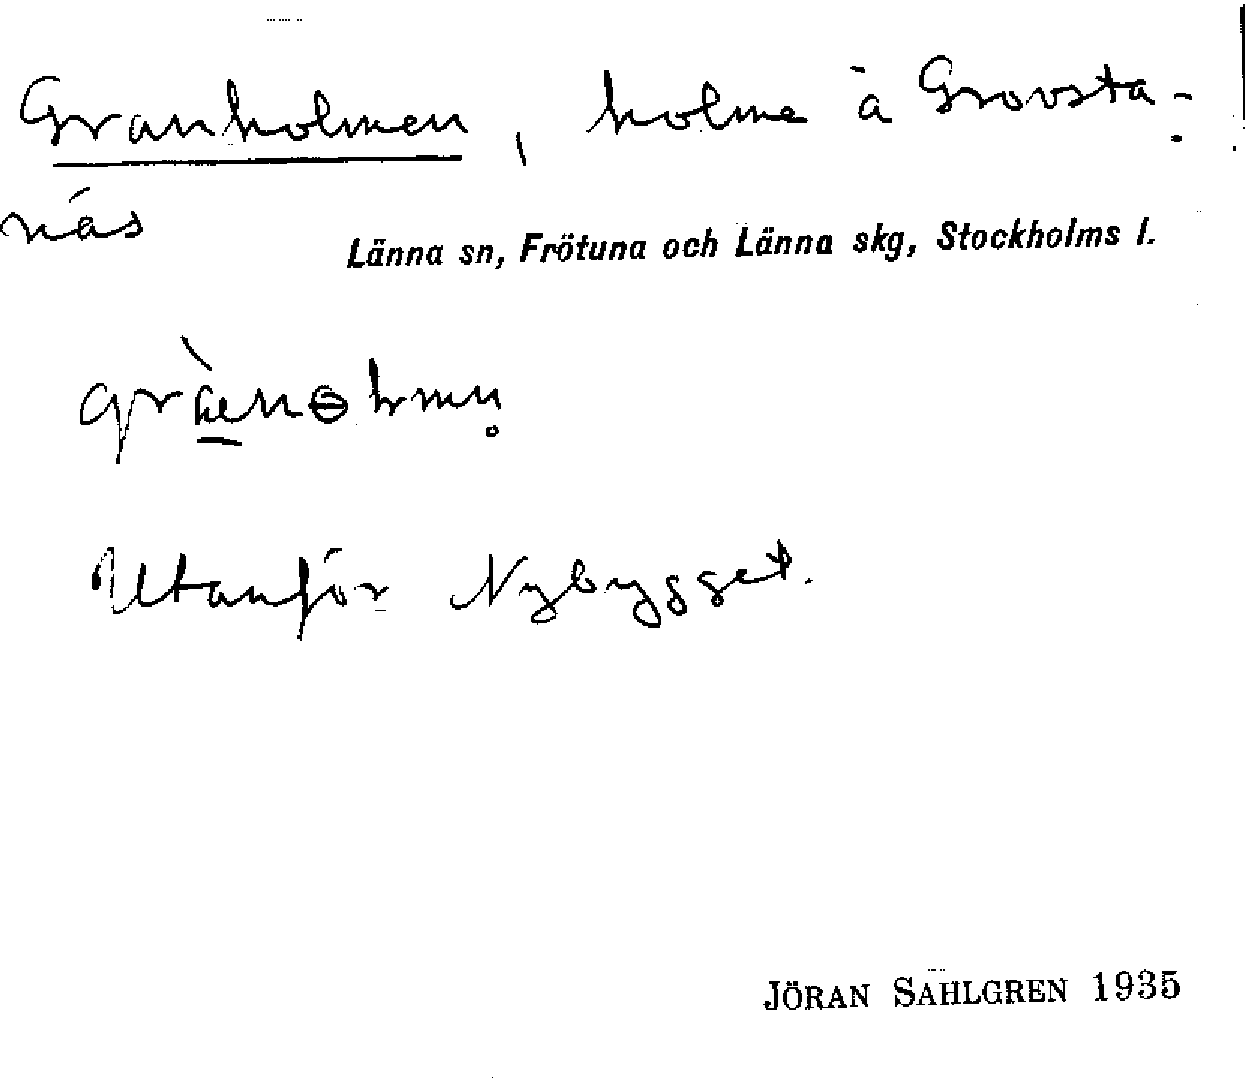 Granholmen, holme å Grovsta-
näs
Länna sn, Frötuna och Länna skg, Stockholms l.
Utanför Nybygget.
JÖRAN SAHLGREN 1935